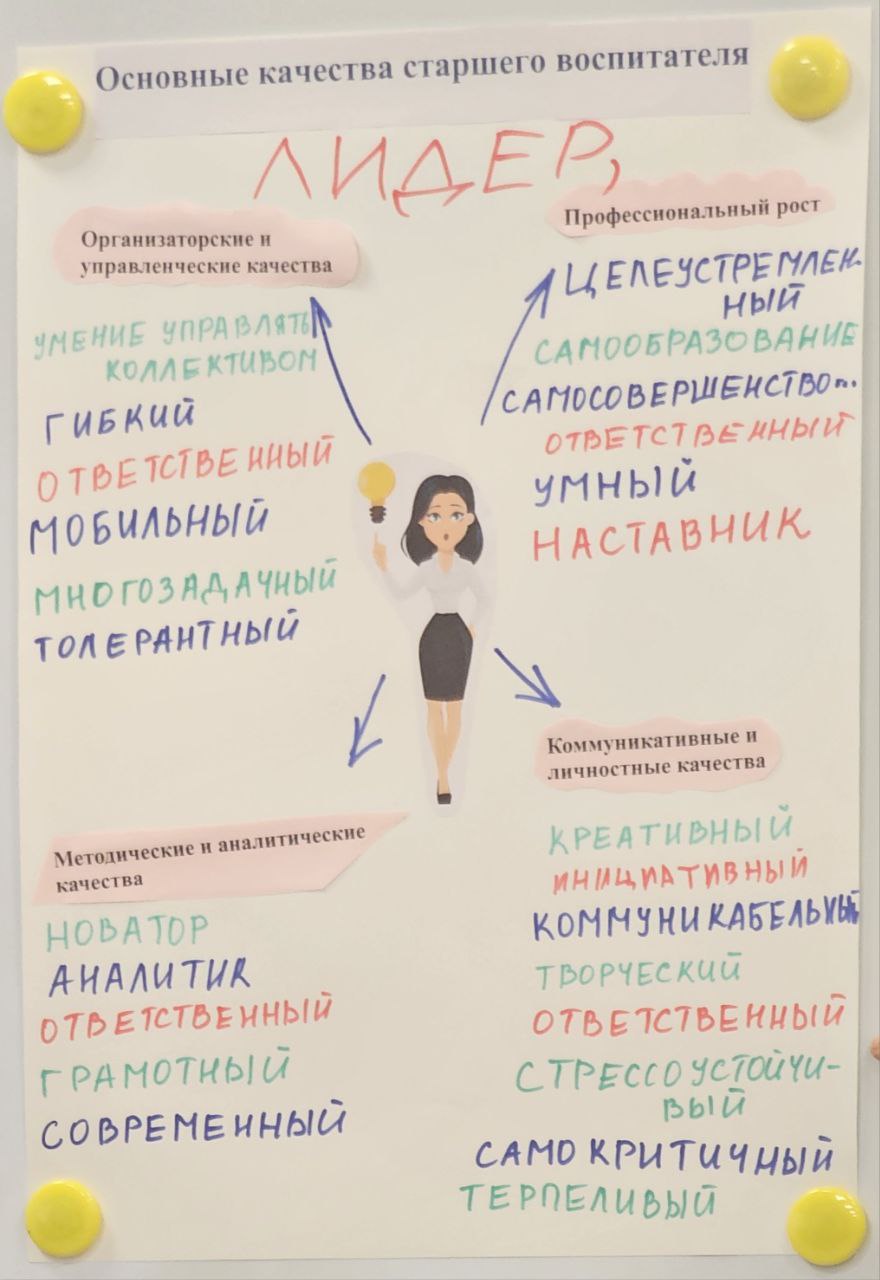 Основные качества старшего воспитателя
ЛИДЕР,
Организаторские и
управленческие качества
УМЕНИЕ УПРАВЛЯТЬ
КОЛЛЕКТИВОМ
ГИБКИЙ
ОТВЕТСТВЕННЫЙ
МОБИЛЬНЫЙ
МНОГОЗАДАЧНЫЙ
ТОЛЕРАНТНЫЙ
Профессиональный рост
ЦЕЛЕУСТРЕМЛЕН-
НЫЙ
САМООБРАЗОВАНИЕ
САМОСОВЕРШЕНСТВО...
ОТВЕТСТВЕННЫЙ
УМНЫЙ
НАСТАВНИК
Методические и аналитические
качества
НОВАТОР
АНАЛИТИК
ОТВЕТСТВЕННЫЙ
ГРАМОТНЫЙ
СОВРЕМЕННЫЙ
Коммуникативные и
личностные качества
КРЕАТИВНЫЙ
ИНИЦИАТИВНЫЙ
КОММУНИКАБЕЛЬНЫЙ
ТВОРЧЕСКИЙ
ОТВЕТСТВЕННЫЙ
СТРЕССОУСТОЙЧИ-
ВЫЙ
САМОКРИТИЧНЫЙ
ТЕРПЕЛИВЫЙ